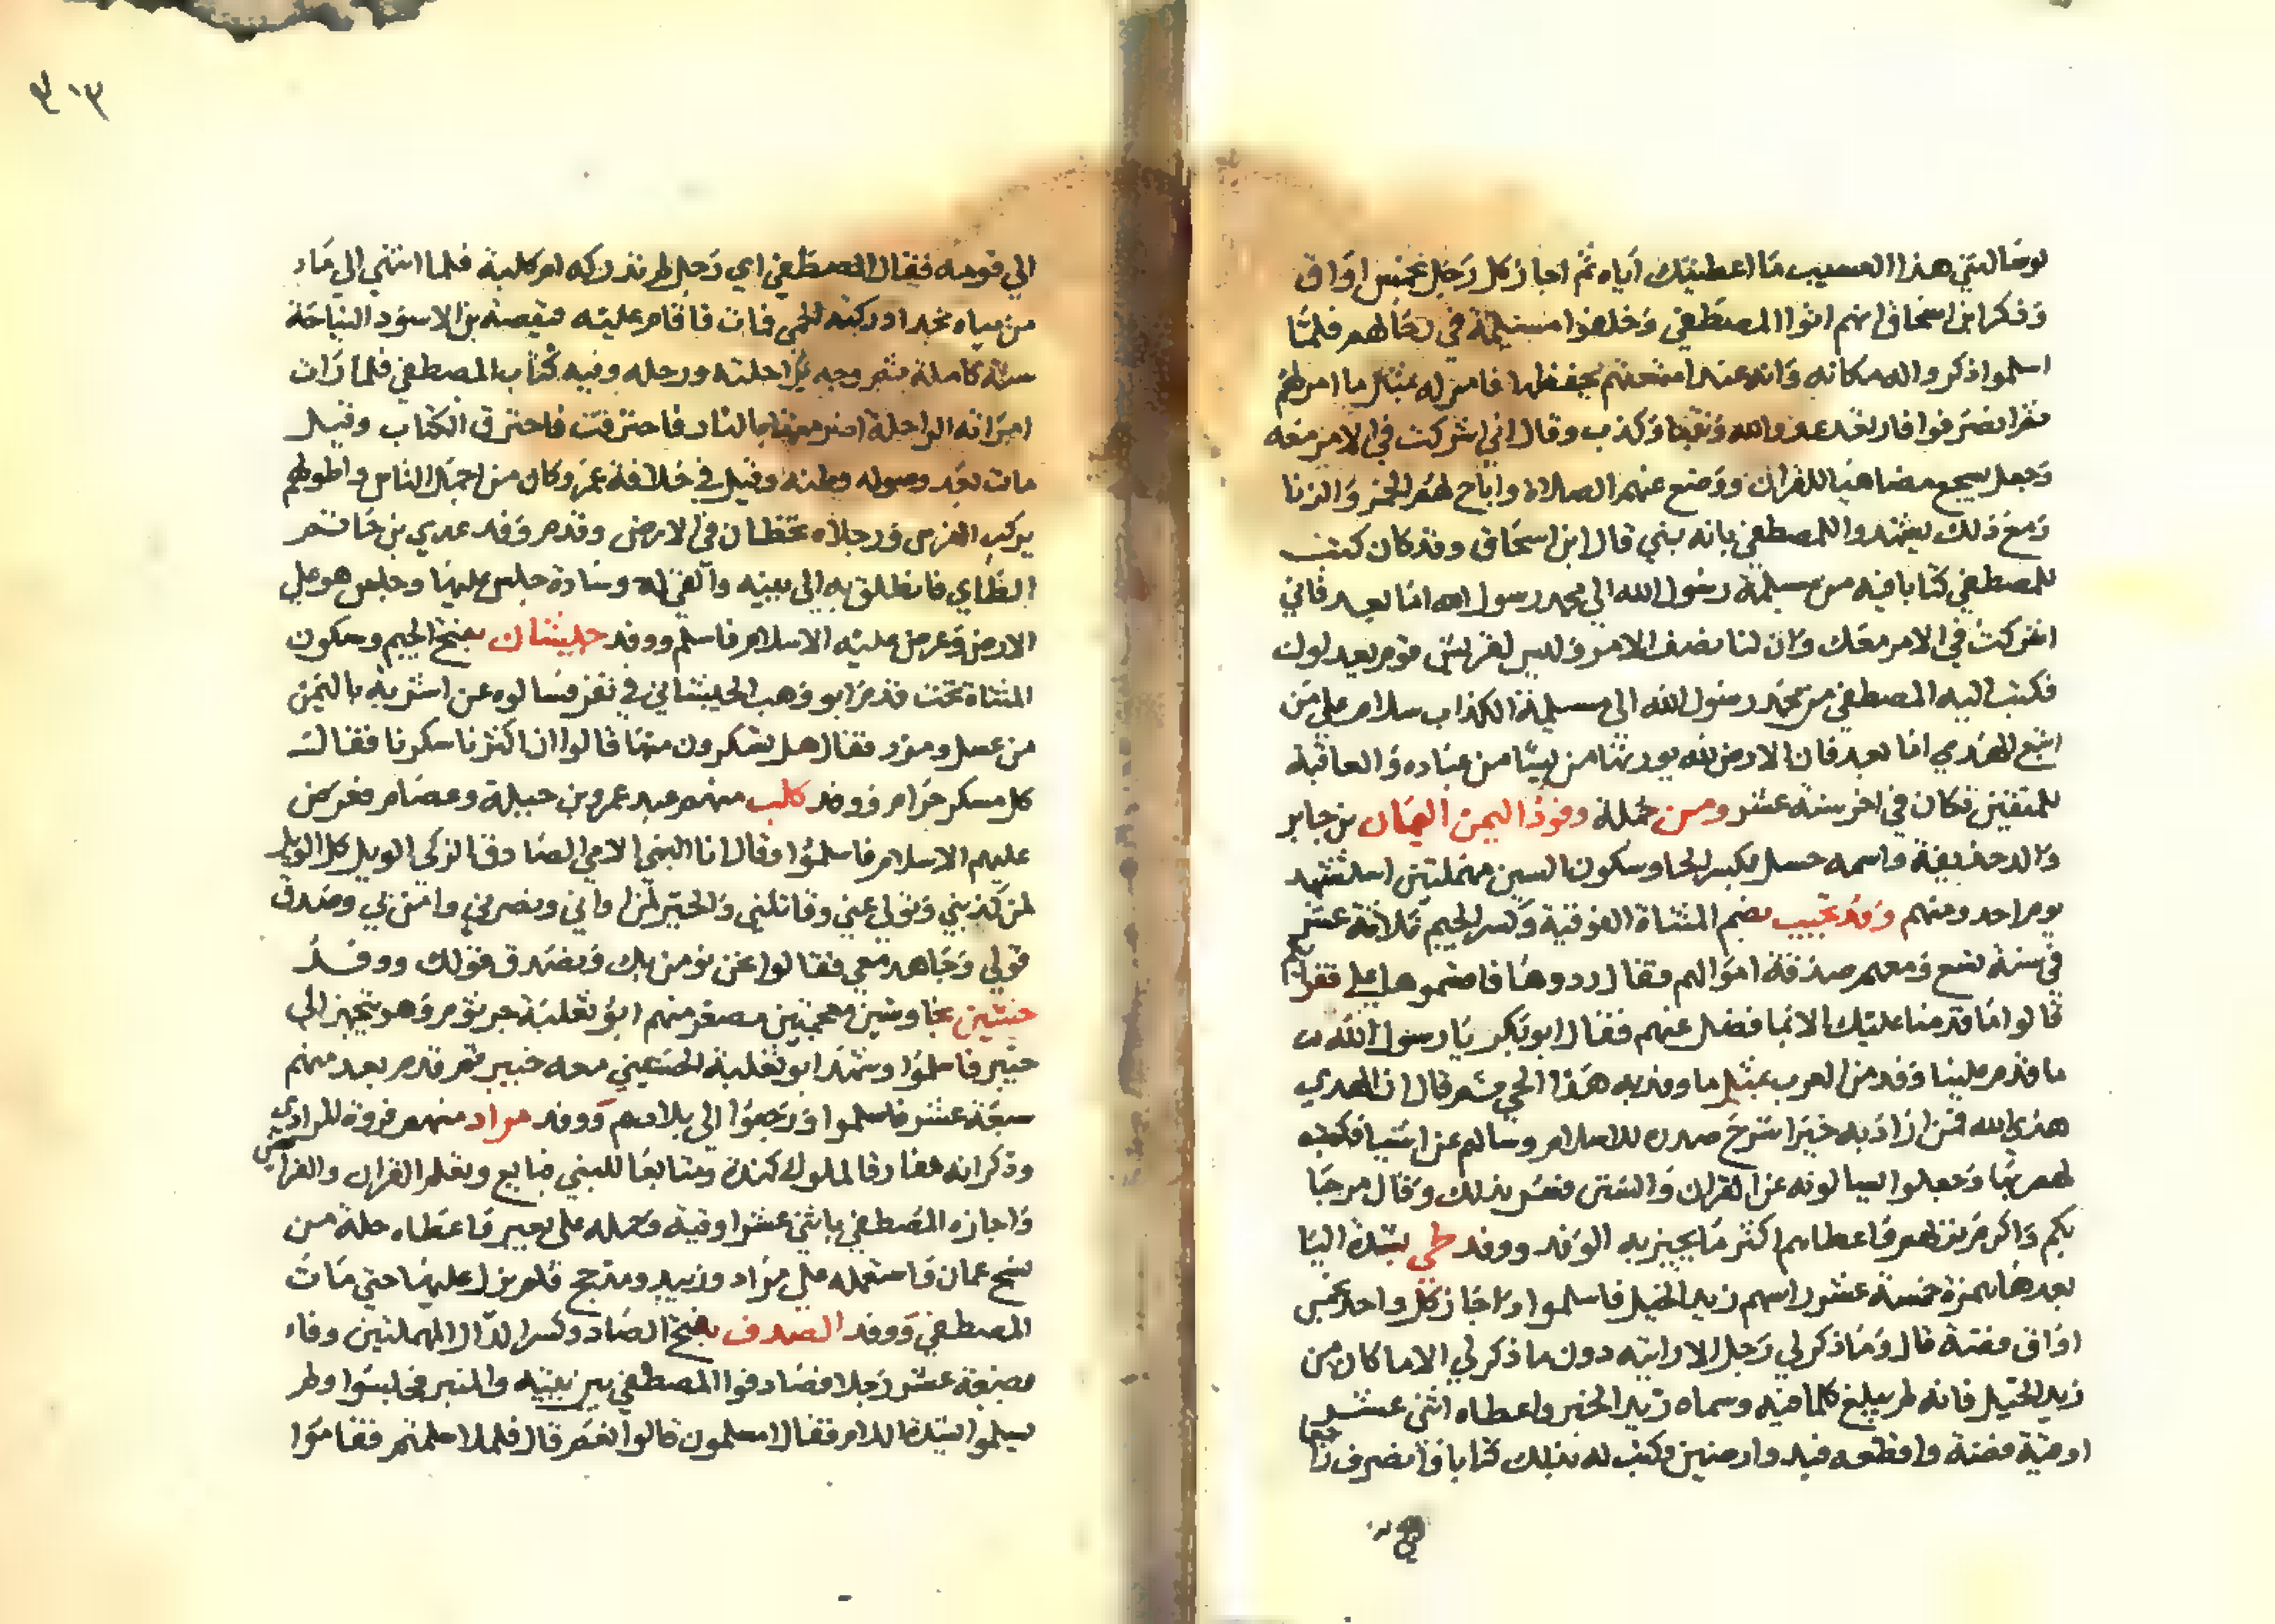 لو سالتني هذا العسيب ما اعطيتك اياه ثم اجاز كل رجل بخمس اواق
وذكر ابن اسحاق انهم اتوا المصطفي وخلفوا مسيلمة في رحالهم فلما
اسلموا ذكروا له مكانه وانه عند امتعتهم يحفظها فامر له بمثل ما امر لهم
ثم انصرفوا فارتد عدو الله وتنبا وكذب وقال اني اشركت في الامر معه
وجعل يسجع مضاهيا للقران ووضع عنهم الصلاة واباح لهم الخمر والزنا
ومع ذلك يشهد والمصطفي بانه نبي قال ابن اسحاق وقد كان كتب
للمصطفي كتابا فيه من مسيلمة رسول الله الي محمد رسول الله اما بعد فاني
اشركت في الامر معك وان لنا نصف الامر وليس لقريش قوم يعدلوك
فكتب اليه المصطفي من محمد رسول الله الي مسيلمة الكذاب سلام علي من
اتبع الهدي اما بعد فان الارض لله يورثها من يشا من عباده والعاقبة
للمتقين فكان في اخر سنة عشر ومن جملة وفود اليمن اليمان بن جابر
والد حذيفة واسمه حسل بكسر الحا وسكون السين مهملتين استشهد
يوم احد ومنهم وفد تجيب بضم المثناة الفوقية وكسر الجيم ثلاثة عشر
في سنة تسع ومعهم صدقة اموالهم فقال ردوها فاقسموها علي فقرائكم
قالوا ما قدمنا عليك الا بما فضل عنهم فقال ابو بكر يا رسول الله
ما قدم علينا وفد من العرب بمثل ما وفد به هذا الحي ثم قال ان الهدي
هدي الله فمن اراد به خيرا شرح صدره للاسلام وسالهم عن اشيا فكتب
لهم بها وجعلوا يسالونه عن القران والسنن فسر بذلك وقال مرحبا
بكم واكرم نزلهم فاعطاهم اكثر ما يجيز به الوفد ووفد طي بشدة اليا
بعدها همزة خمسة عشر راسهم زيد الخيل فاسلموا واجاز كل واحد بخمس
اواق فضة قال وما ذكر لي رجل الا رايته دون ما ذكر لي الا ما كان من
زيد الخيل فانه لم يبلغ كلما فيه وسماه زيد الخير واعطاه اثني عشر
اوقية فضة واقطعه فيد وارضين وكتب له بذلك كتابا فانصرف راجعا
الي قومه فقال المصطفي اي رجل لم تدركه ام كلبة فلما انتهي الي ماء
من مياه نجد ادركته الحمي فمات فاقام عليه قبيصة بن الاسود النياحة
سنة كاملة ثم وجه براحلته ورحله وفيه كتاب المصطفي فلما رات
امراته الراحلة اضرمتها بالنار فاحترقت فاحترق الكتاب وقيل
مات بعد وصوله وطنه وقيل في خلافة عمر وكان من اجمل الناس واطولهم
يركب الفرس ورجلاه تخطان في الارض وقدم وفد عدي بن حاتم
الطاي فانطلق به الي بيته والقي له وسادة جلس عليها وجلس هو علي
الارض وعرض عليه الاسلام فاسلم ووفد جيشان بفتح الجيم وسكون
المثناة تحت قدم ابو وهب الجيشاني في نفر فسالوه عن اشربة باليمن
من عسل ومزر فقال هل تسكرون منها قالوا ان اكثرنا سكرنا فقال
كل مسكر حرام ووفد كلب منهم عبد عمرو بن جبيلة وعصام فعرض
عليهم الاسلام فاسلموا وقال انا النبي الامي الصادق الزكي الويل كل الويل
لمن كذبني وتولي عني وقاتلني والخير لمن اواني ونصرني وامن بي وصدق
قولي وجاهد معي فقالوا نحن نؤمن بك ونصدق قولك ووفد
خشين بخا وشين معجمتين مصغر منهم ابو ثعلبة جرثوم وهو يتجهز الي
خيبر فاسلموا وشهد ابو ثعلبة الخشيني معه خيبر ثم قدم بعد منهم
سبعة عشر فاسلموا ورجعوا الي بلادهم ووفد مراد منهم فروة المرادي
وذكر انه مفارقا لملوك كندة ومتابعا للنبي فبايع وتعلم القران والفرائض
واجازه المصطفي باثني عشر اوقية وحمله علي بعير واعطاه حلة من
نسج عمان واستعمله علي مراد وزبيد ومذحج فلم يزل عليها حتي مات
المصطفي ووفد الصدف بفتح الصاد وكسر الدال المهملتين وفاء
بضعة عشر رجلا فصادفوا المصطفي بين بيته والمنبر فجلسوا ولم
يسلموا ابتداء للدام فقال امسلمون قالوا نعم قال فلم لا سلمتم فقاموا